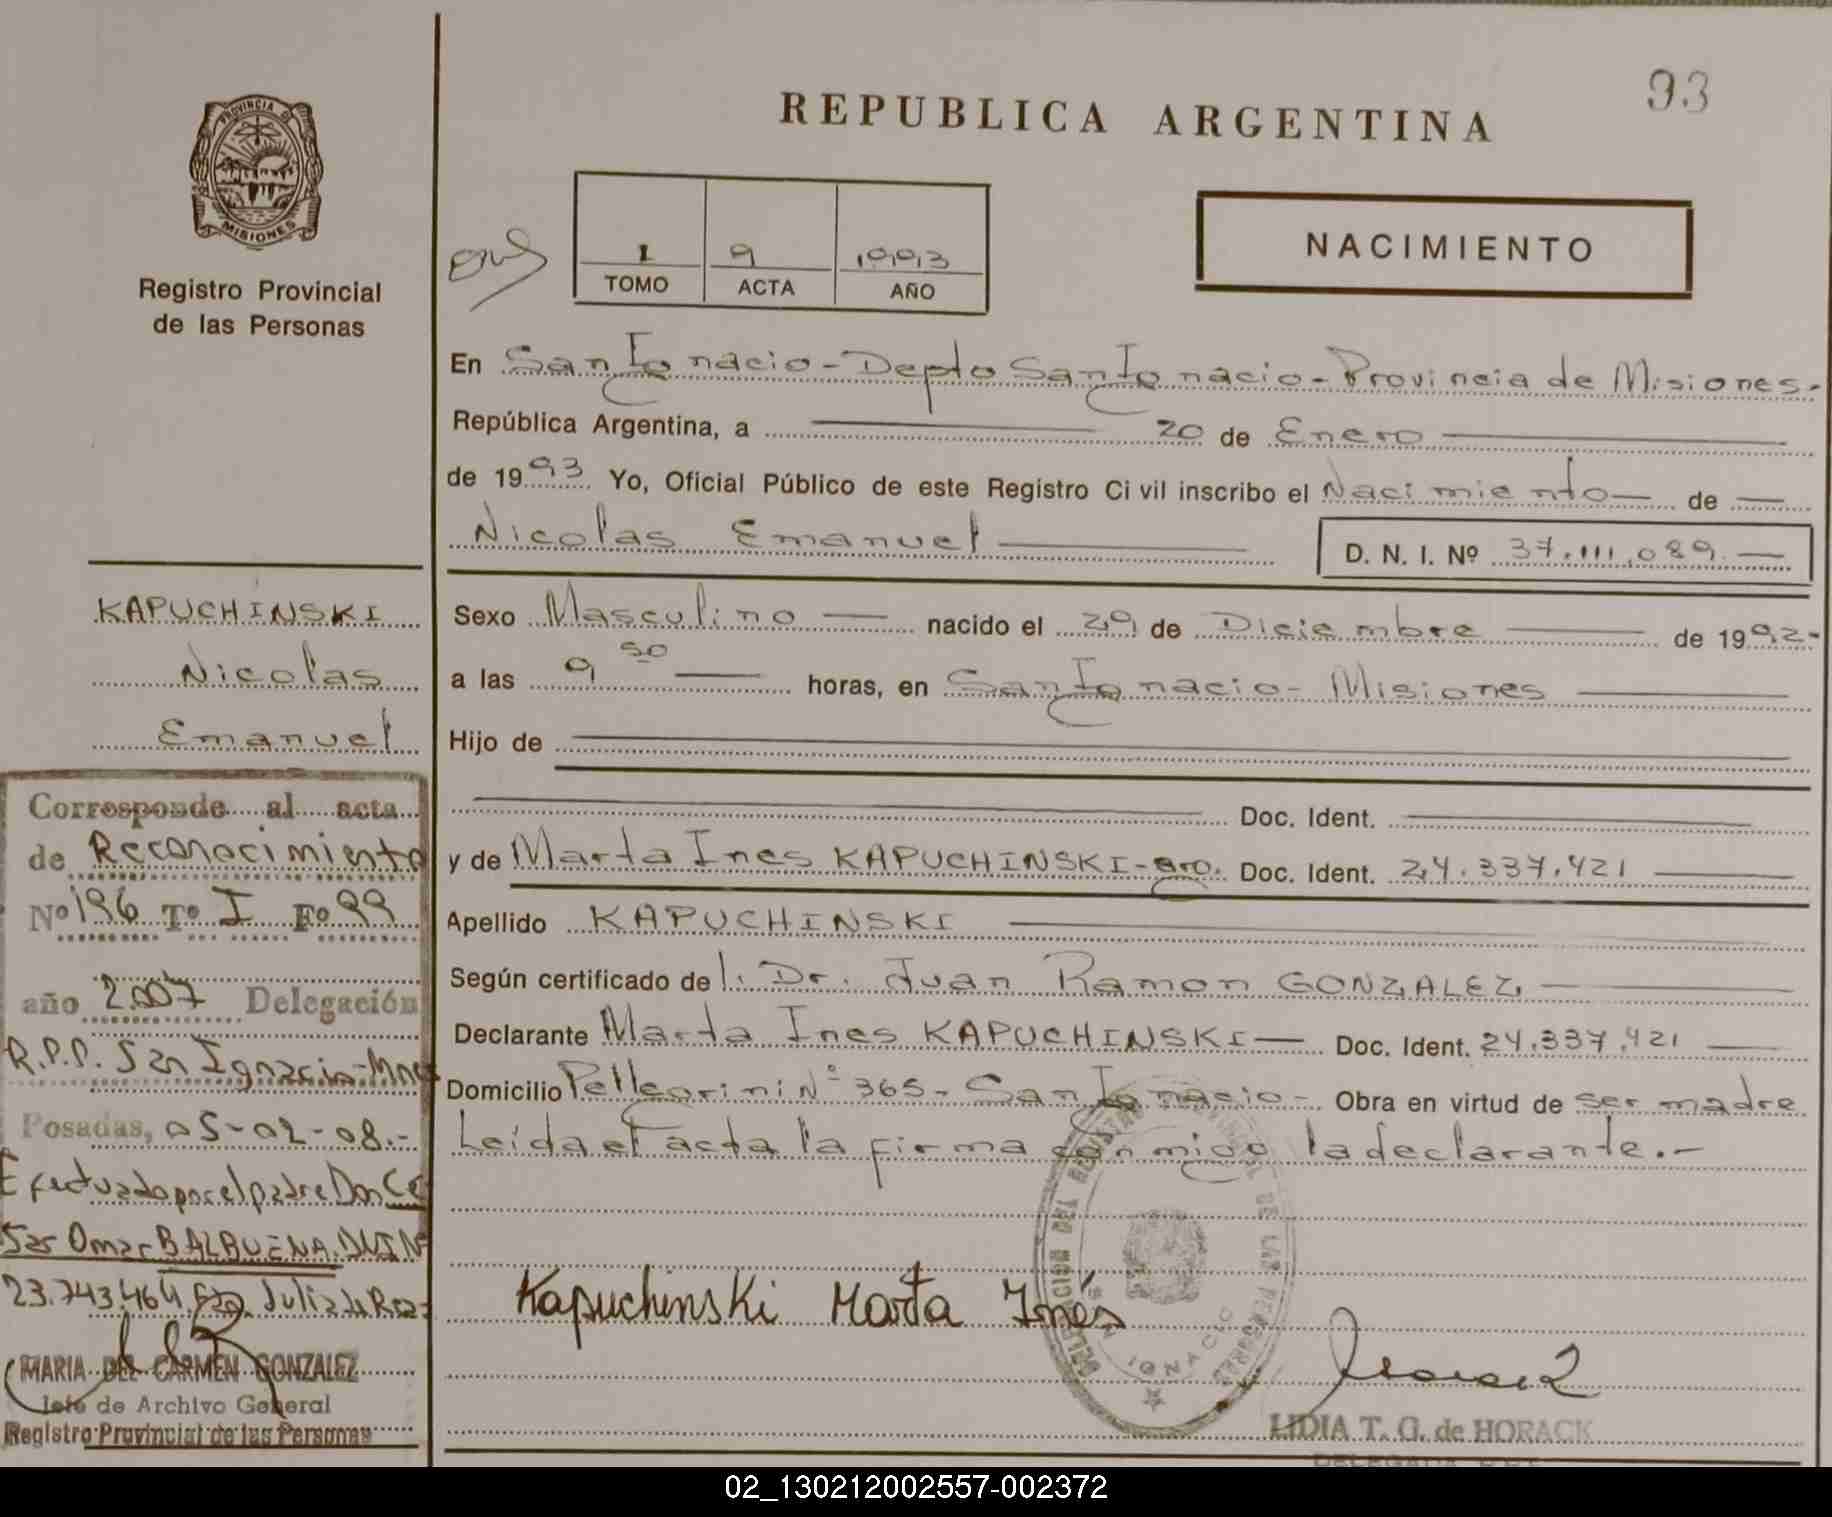 93
REPUBLICA ARGENTINA
PROVINCIA DE
MISIONES
Registro Provincial
de las Personas
1 9 1993
TOMO ACTA AÑO
NACIMIENTO
En San Ignacio - Depto San Ignacio - Provincia de Misiones.
República Argentina, a 20 de Enero
de 1993 Yo, Oficial Público de este Registro Civil inscribo el Nacimiento de
Nicolas Emanuel D. N. I. Nº 37.111.089.
Sexo Masculino nacido el 29 de Diciembre de 1992-
a las 9 30 horas, en San Ignacio - Misiones
Hijo de
Doc. Ident.
y de Marta Ines KAPUCHINSKI - Doc. Ident. 24.337.421
Apellido KAPUCHINSKI
Según certificado del. Dr. Juan Ramon GONZALEZ
Declarante Marta Ines KAPUCHINSKI Doc. Ident. 24.337.421
Domicilio Pellegrini Nº 365 - San Ignacio - Obra en virtud de ser madre
Leída el acta la firma conmigo la declarante.-
Kapuchinski Marta Inés
DELEGACION DEL REGISTRO PROVINCIAL DE LAS PERSONAS
SAN IGNACIO
LIDIA T. G. de HORACK
KAPUCHINSKI
Nicolas
Emanuel
Corresponde al acta
de Reconocimiento
Nº 196 Tº I Fº 99
año 2.007 Delegación
R.P.P. San Ignacio - Mnes
Posadas, 05-02-08.-
Efectuado por el padre Don Ce
sar Omar BALBUENA. DNI Nº
23.743.464
MARIA DEL CARMEN GONZALEZ
Jefe de Archivo General
Registro Provincial de las Personas
02_130212002557-002372